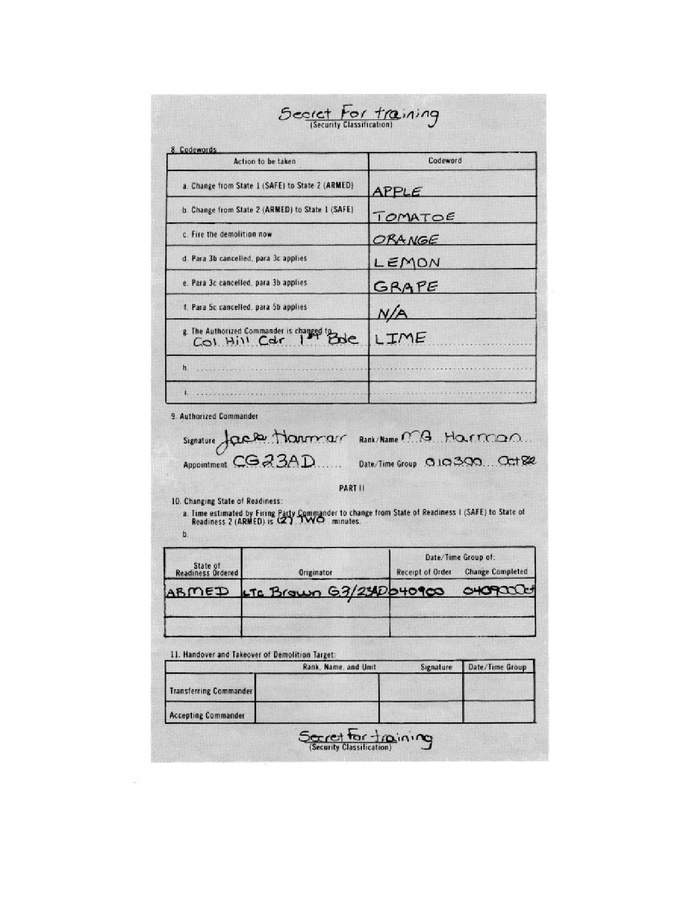 Secret For training
(Security Classification)
8. Codewords
Action to be taken Codeword
a. Change from State 1 (SAFE) to State 2 (ARMED) APPLE
b. Change from State 2 (ARMED) to State 1 (SAFE) TOMATOE
c. Fire the demolition now ORANGE
d. Para 3b cancelled, para 3c applies LEMON
e. Para 3c cancelled, para 3b applies GRAPE
f. Para 5c cancelled, para 5b applies N/A
g. The Authorized Commander is changed to
Col Hill Cdr 1st Bde LIME
h.
i.
9. Authorized Commander
Signature Jack Harman Rank/Name MG Harman
Appointment CG23AD Date/Time Group 010300 Oct 82
PART II
10. Changing State of Readiness:
a. Time estimated by Firing Party Commander to change from State of Readiness I (SAFE) to State of
Readiness 2 (ARMED) is (2) TWO minutes.
b.
Date/Time Group of:
State of
Readiness Ordered Originator Receipt of Order Change Completed
ARMED LTC Brown G3/23AD 040900 Oct
11. Handover and Takeover of Demolition Target:
Rank, Name, and Unit Signature Date/Time Group
Transferring Commander
Accepting Commander
Secret For training
(Security Classification)